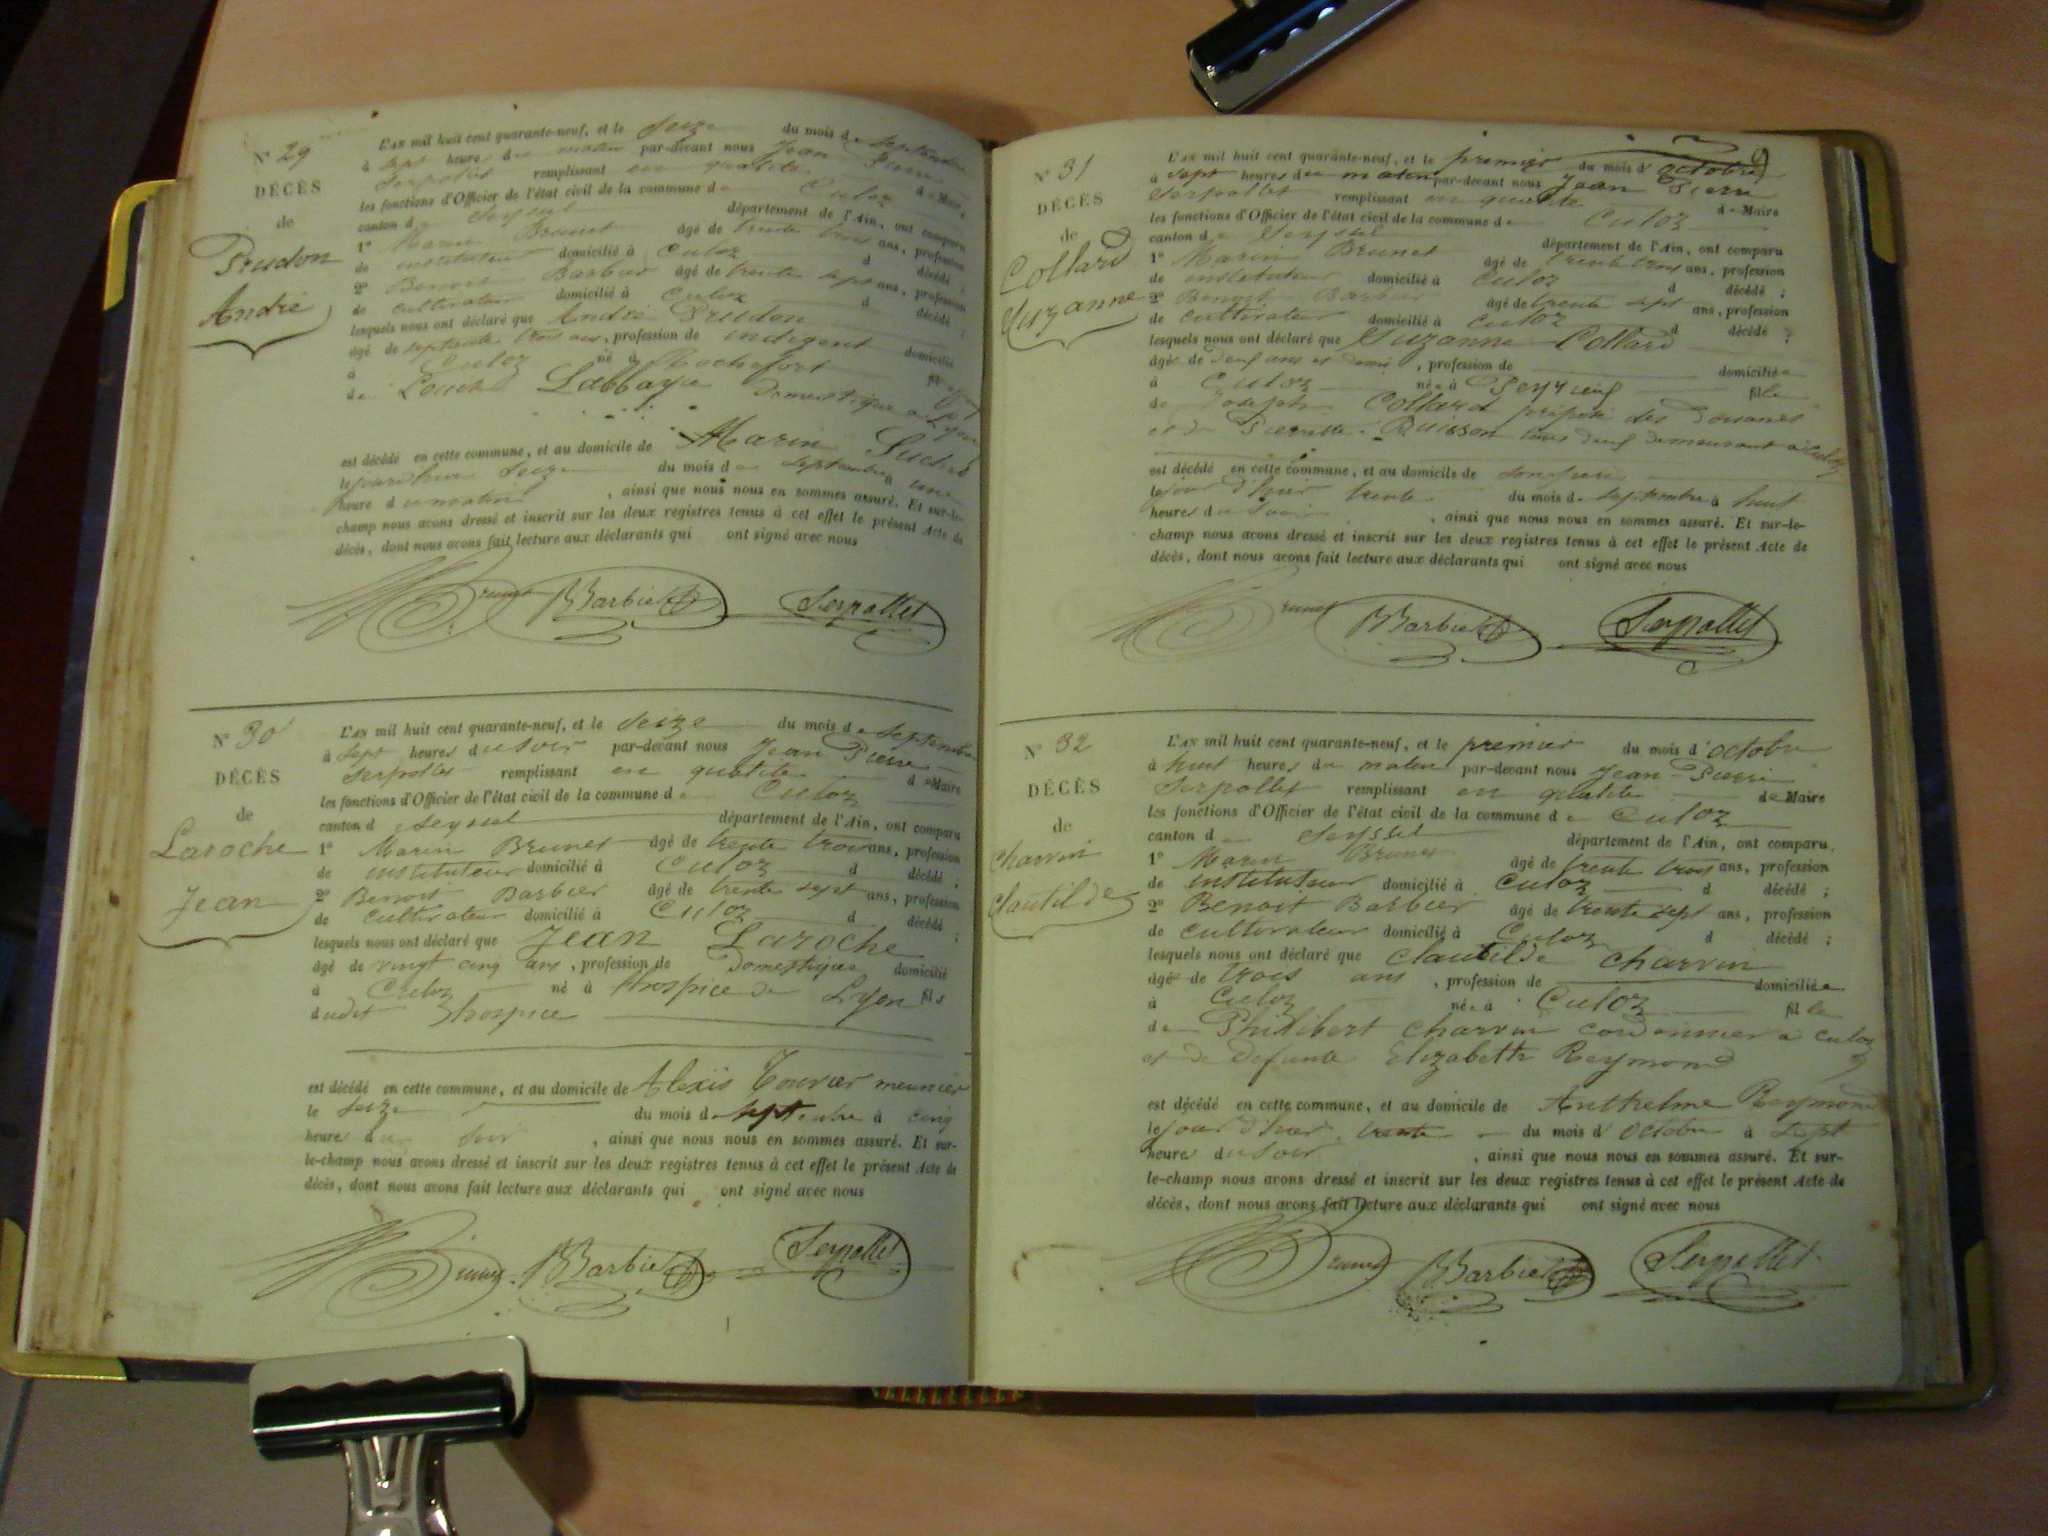 N° 29
DÉCÈS
de
Prudon
André
L'AN mil huit cent quarante-neuf, et le seize du mois de septembre
à sept heure du matin par-devant nous Jean Pierre
Serpollet remplissant en qualité de Maire
les fonctions d'Officier de l'état civil de la commune de Culoz
canton de Seyssel département de l'Ain, ont comparu
1° Marin Brunet âgé de trente trois ans, profession
de instituteur domicilié à Culoz d décédé ;
2° Benoit Barbier âgé de trente sept ans, profession
de cultivateur domicilié à Culoz d décédé ;
lesquels nous ont déclaré que André Prudon
âgé de septante trois ans, profession de indigent domicilié
à Culoz né à Rochefort
de Labbaye Domestique à Lyon
est décédé en cette commune, et au domicile de Marin
le jourdhui seize du mois de septembre à une
heure du matin , ainsi que nous nous en sommes assuré. Et sur-le-
champ nous avons dressé et inscrit sur les deux registres tenus à cet effet le présent Acte de
décès, dont nous avons fait lecture aux déclarants qui ont signé avec nous
Brunet BBarbier Serpollet
N° 30
DÉCÈS
de
Laroche
Jean
L'AN mil huit cent quarante-neuf, et le seize du mois de septembre
à sept heures du soir par-devant nous Jean Pierre
Serpollet remplissant en qualité de Maire
les fonctions d'Officier de l'état civil de la commune de Culoz
canton d Seyssel département de l'Ain, ont comparu
1° Marin Brunet âgé de trente trois ans, profession
de instituteur domicilié à Culoz d décédé ;
2° Benoit Barbier âgé de trente sept ans, profession
de cultivateur domicilié à Culoz d décédé ;
lesquels nous ont déclaré que Jean Laroche
âgé de vingt cinq ans, profession de Domestique domicilié
à Culoz né à Hospice de Lyon fils
dudit hospice
est décédé en cette commune, et au domicile de Alexis Touvier meunier
le seize du mois de septembre à cinq
heures du soir , ainsi que nous nous en sommes assuré. Et sur-
le-champ nous avons dressé et inscrit sur les deux registres tenus à cet effet le présent Acte de
décès, dont nous avons fait lecture aux déclarants qui ont signé avec nous
Brunet BBarbier Serpollet
N° 31
DÉCÈS
de
Collard
Suzanne
L'AN mil huit cent quarante-neuf, et le premier du mois d'octobre
à sept heures du matin par-devant nous Jean Pierre
Serpollet remplissant en qualité de Maire
les fonctions d'Officier de l'état civil de la commune de Culoz
canton de Seyssel département de l'Ain, ont comparu
1° Marin Brunet âgé de trente trois ans, profession
de instituteur domicilié à Culoz d décédé ;
2° Benoit Barbier âgé de trente sept ans, profession
de cultivateur domicilié à Culoz d décédé ;
lesquels nous ont déclaré que Suzanne Collard
âgée de neuf ans et demi, profession de domiciliée
à Culoz née à Peyrieu fille
de Joseph Collard préposé des Douanes
et de Pierrette Buisson tous deux demeurant à Culoz
est décédé en cette commune, et au domicile de son père
le jour d'hier trente du mois de septembre à huit
heures du soir , ainsi que nous nous en sommes assuré. Et sur-le-
champ nous avons dressé et inscrit sur les deux registres tenus à cet effet le présent Acte de
décès, dont nous avons fait lecture aux déclarants qui ont signé avec nous
Brunet BBarbier Serpollet
N° 32
DÉCÈS
de
Charvin
Clautilde
L'AN mil huit cent quarante-neuf, et le premier du mois d'octobre
à huit heures du matin par-devant nous Jean-Pierre
Serpollet remplissant en qualité de Maire
les fonctions d'Officier de l'état civil de la commune de Culoz
canton de Seyssel département de l'Ain, ont comparu
1° Marin Brunet âgé de trente trois ans, profession
de instituteur domicilié à Culoz d décédé ;
2° Benoit Barbier âgé de trente sept ans, profession
de cultivateur domicilié à Culoz d décédé ;
lesquels nous ont déclaré que Clautilde Charvin
âgée de trois ans, profession de domiciliée
à Culoz née à Culoz fille
de Philibert Charvin cordonnier à Culoz
et de Defunte Elizabeth Reymond
est décédé en cette commune, et au domicile de Anthelme Reymond
le jour d'hier trente du mois d'octobre à sept
heures du soir , ainsi que nous nous en sommes assuré. Et sur-
le-champ nous avons dressé et inscrit sur les deux registres tenus à cet effet le présent Acte de
décès, dont nous avons fait lecture aux déclarants qui ont signé avec nous
Brunet BBarbier Serpollet